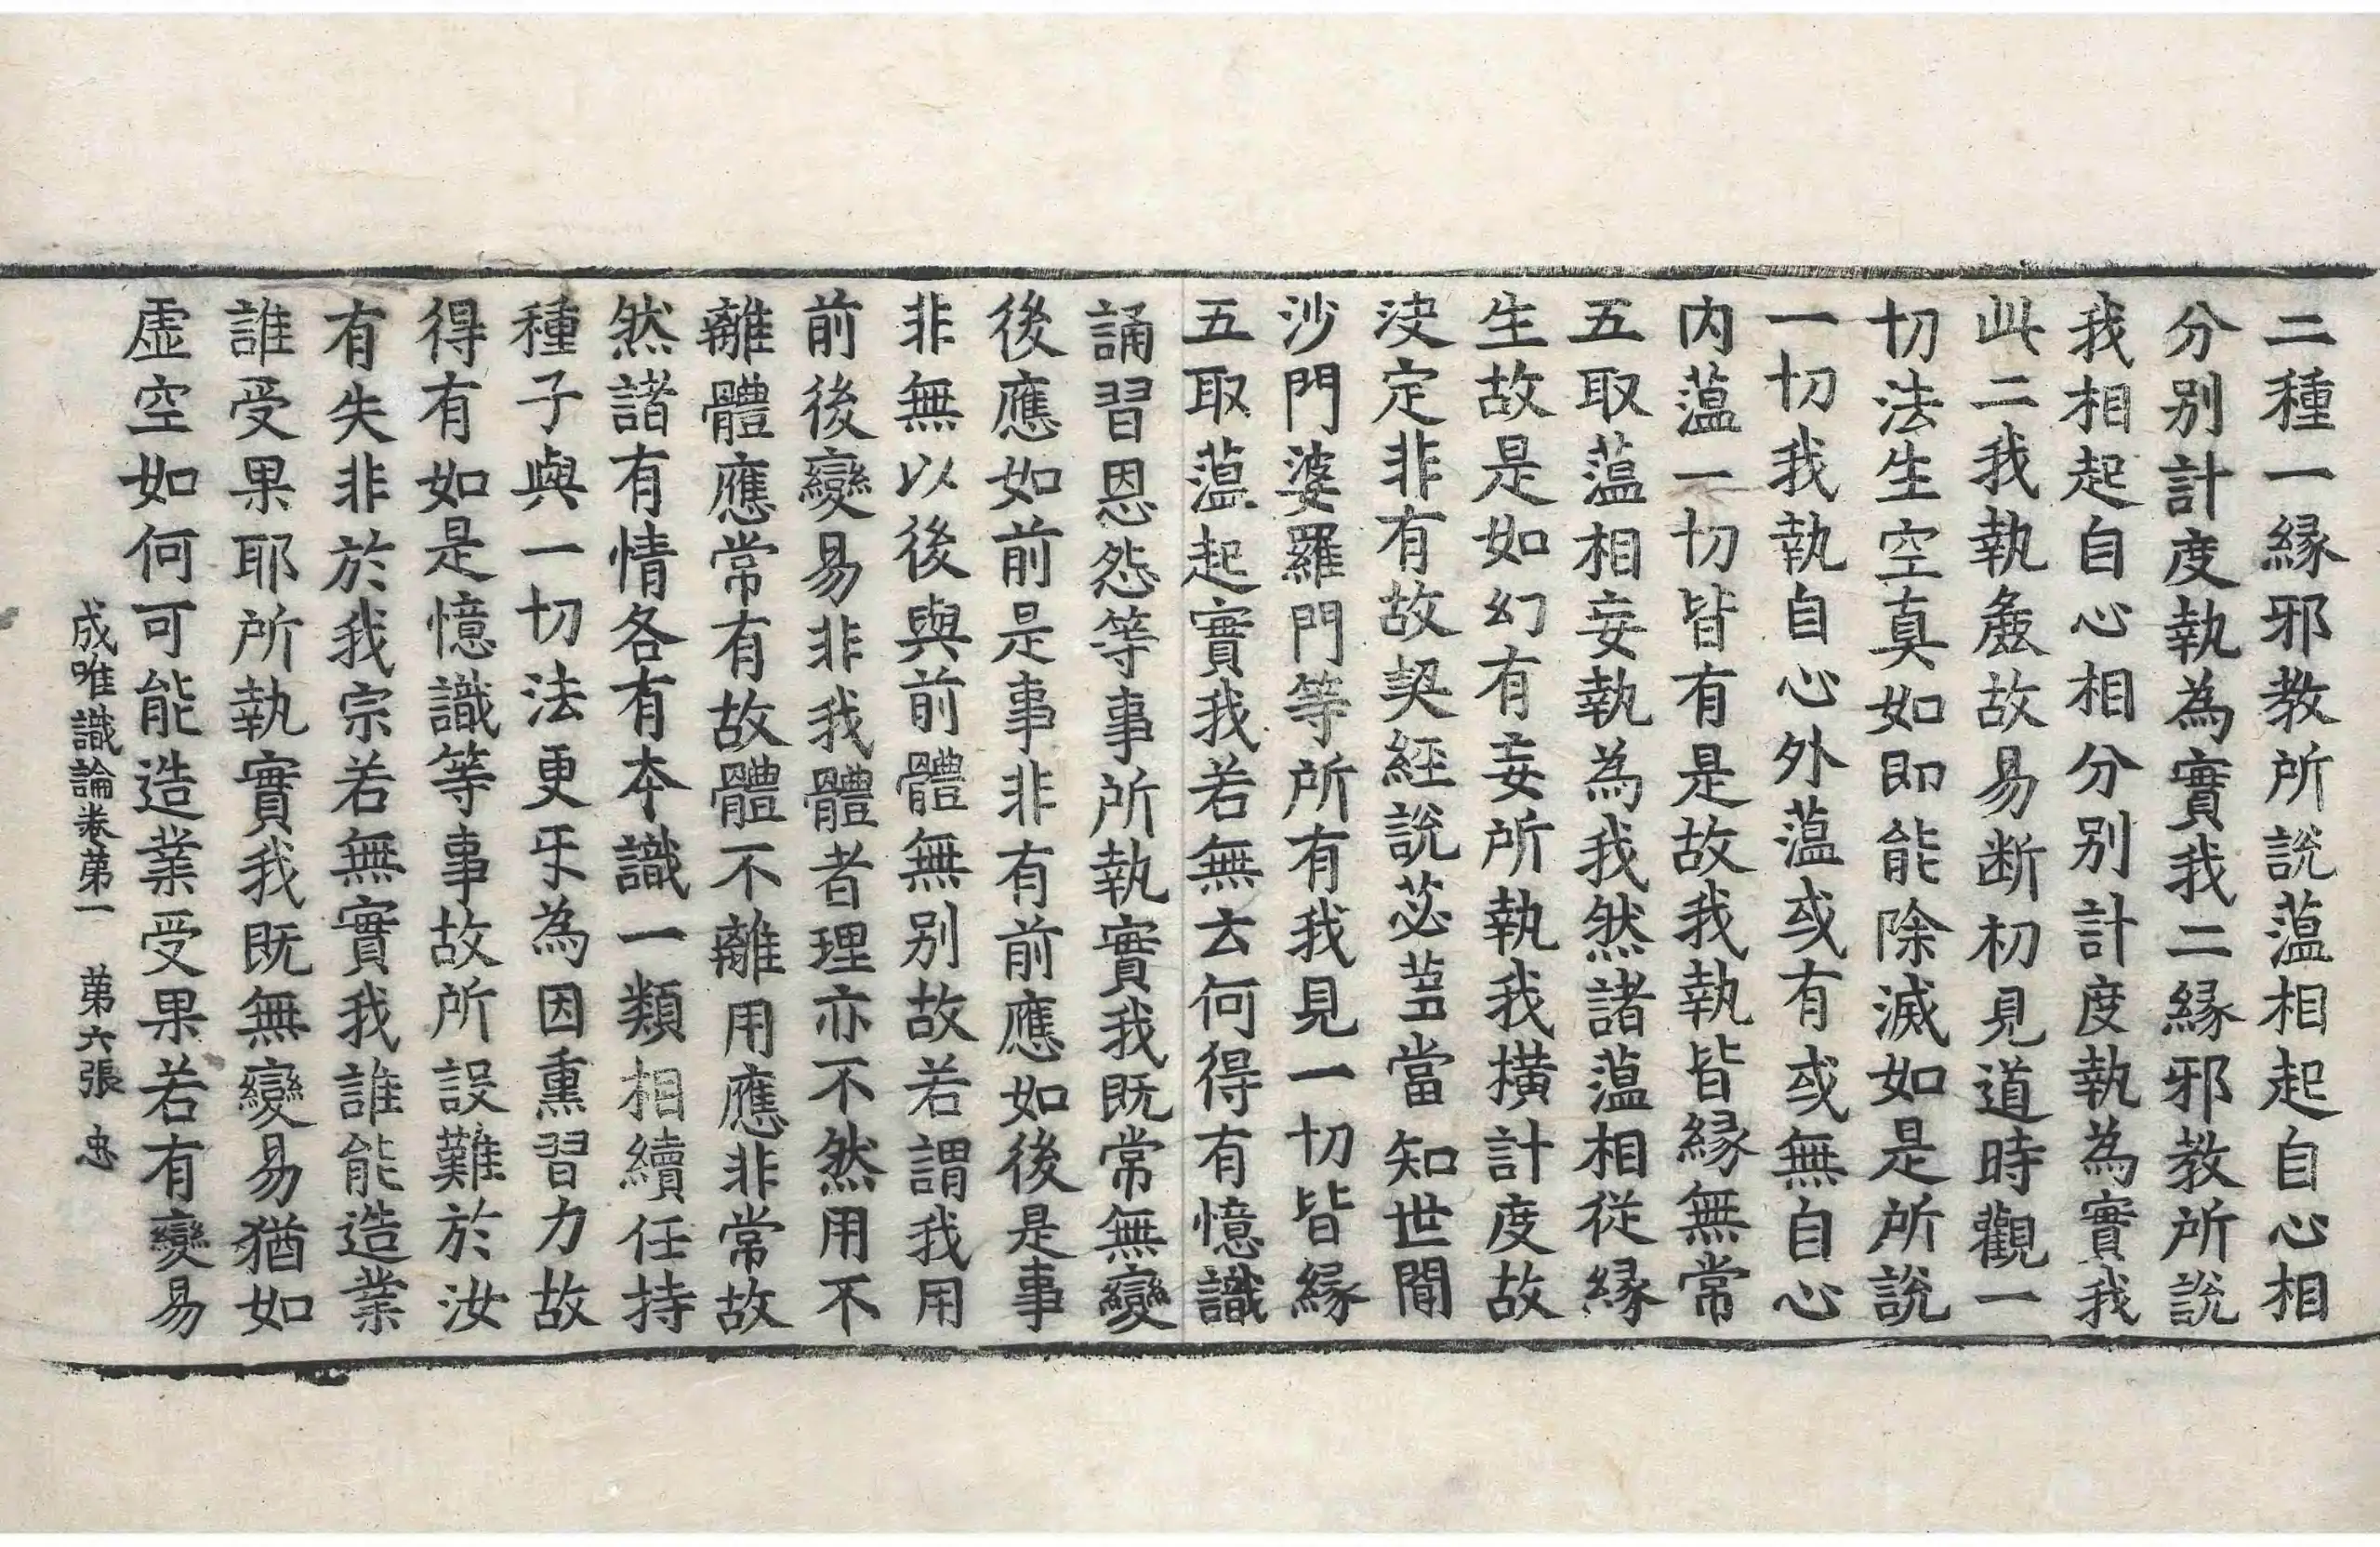 二種一緣邪教所說蕰相起自心相
分別計度執為實我二緣邪教所說
我相起自心相分別計度執為實我
此二我執麁故易断初見道時觀一
切法生空真如即能除滅如是所說
一切我執自心外蕰或有或無自心
内蕰一切皆有是故我執皆緣無常
五取蕰相妄執為我然諸蕰相從緣
生故是如幻有妄所執我橫計度故
決定非有故契經說苾蒭當知世間
沙門婆羅門等所有我見一切皆緣
五取蕰起實我若無云何得有憶識
誦習恩怨等事所執實我既常無變
後應如前是事非有前應如後是事
非無以後與前體無別故若謂我用
前後變易非我體者理亦不然用不
離體應常有故體不離用應非常故
然諸有情各有本識一類相續任持
種子與一切法更㸦為因熏習力故
得有如是憶識等事故所設難於汝
有失非於我宗若無實我誰能造業
誰受果耶所執實我既無變易猶如
虛空如何可能造業受果若有變易
成唯識論卷苐一 苐六張 忠